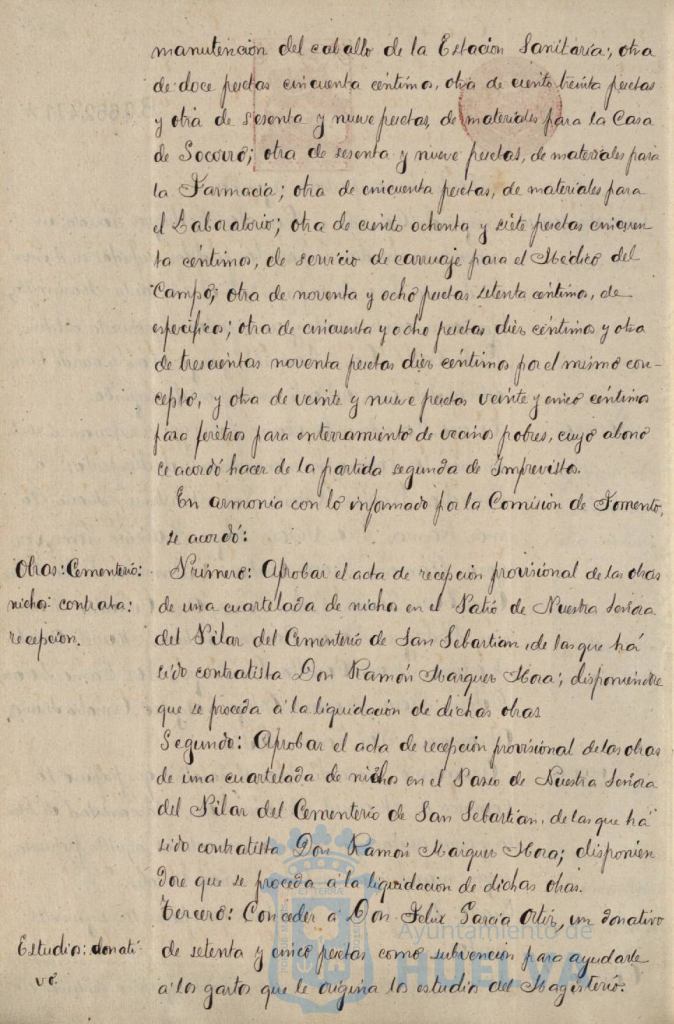 manutención del caballo de la Estación Sanitaria; otra
de doce pesetas cincuenta céntimos, otra de ciento treinta pesetas
y otra de sesenta y nueve pesetas, de materiales para la Casa
de Socorro; otra de sesenta y nueve pesetas, de materiales para
la Farmacia; otra de cincuenta pesetas, de materiales para
el Laboratorio; otra de ciento ochenta y siete pesetas cincuen
ta céntimos, de servicio de carruaje para el Médico del
Campo; otra de noventa y ocho pesetas setenta céntimos, de
específicos; otra de cincuenta y ocho pesetas diez céntimos y otra
de trescientas noventa pesetas diez céntimos por el mismo con-
cepto, y otra de veinte y nueve pesetas veinte y cinco céntimos
para féretros para enterramiento de vecinos pobres, cuyo abono
se acordó hacer de la partida segunda de Imprevistos.
En armonía con lo informado por la Comisión de Fomento,
se acordó:
Obras: Cementerio:
nichos: contrata:
recepción.
Primero: Aprobar el acta de recepción provisional de las obras
de una cuartelada de nichos en el Patio de Nuestra Señora
del Pilar del Cementerio de San Sebastian, de las que há
sido contratista Don Ramón Maiquez Mora; disponiendose
que se proceda á la liquidación de dichas obras
Segundo: Aprobar el acta de recepción provisional de las obras
de una cuartelada de nicho en el Paseo de Nuestra Señora
del Pilar del Cementerio de San Sebastian, de las que há
sido contratista Don Ramón Maiquez Mora; disponien
dose que se proceda á la liquidación de dichas obras.
Estudios: donati-
vo.
Tercero: Conceder á Don Felix García Ortiz, un donativo
de setenta y cinco pesetas como subvención para ayudarle
á los gastos que le origina los estudios del Magisterio.
Ayuntamiento de
HUELVA